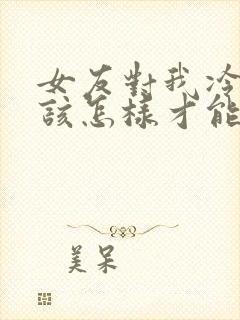 女友對我冷
該怎樣才能
美呆